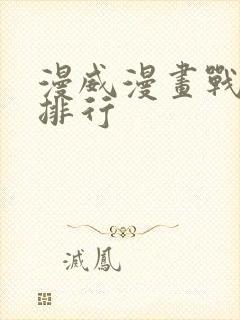 漫威漫畫戰
排行
滅鳳